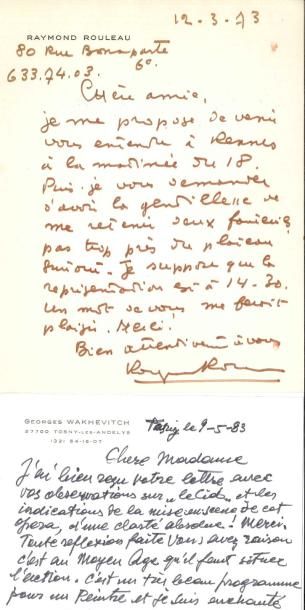 12-3-73
RAYMOND ROULEAU
80 Rue Bonaparte
6e
633.74.03.
Chère amie,
je me propose de venir
vous entendre à Rennes
à la matinée du 18.
Puis-je vous demander
d'avoir la gentillesse de
me retenir deux fauteuils
pas trop près du plateau
surtout. Je suppose que la
représentation est à 14-30.
Un mot de vous me ferait
plaisir. Merci.
Bien attentivement à vous
GEORGES WAKHÉVITCH
27700 TOSNY-LES-ANDELYS
(32) 54-16-07
Tosny, le 9-5-83
Chère Madame
J'ai bien reçu votre lettre avec
vos observations sur "le Cid" et les
indications de la mise en scène de cet
opéra, d'une clarté absolue! Merci.
Toute reflexion faite vous avez raison
c'est au Moyen Age qu'il faut situer
l'action. C'est un très beau programme
pour un Peintre et je suis enchanté